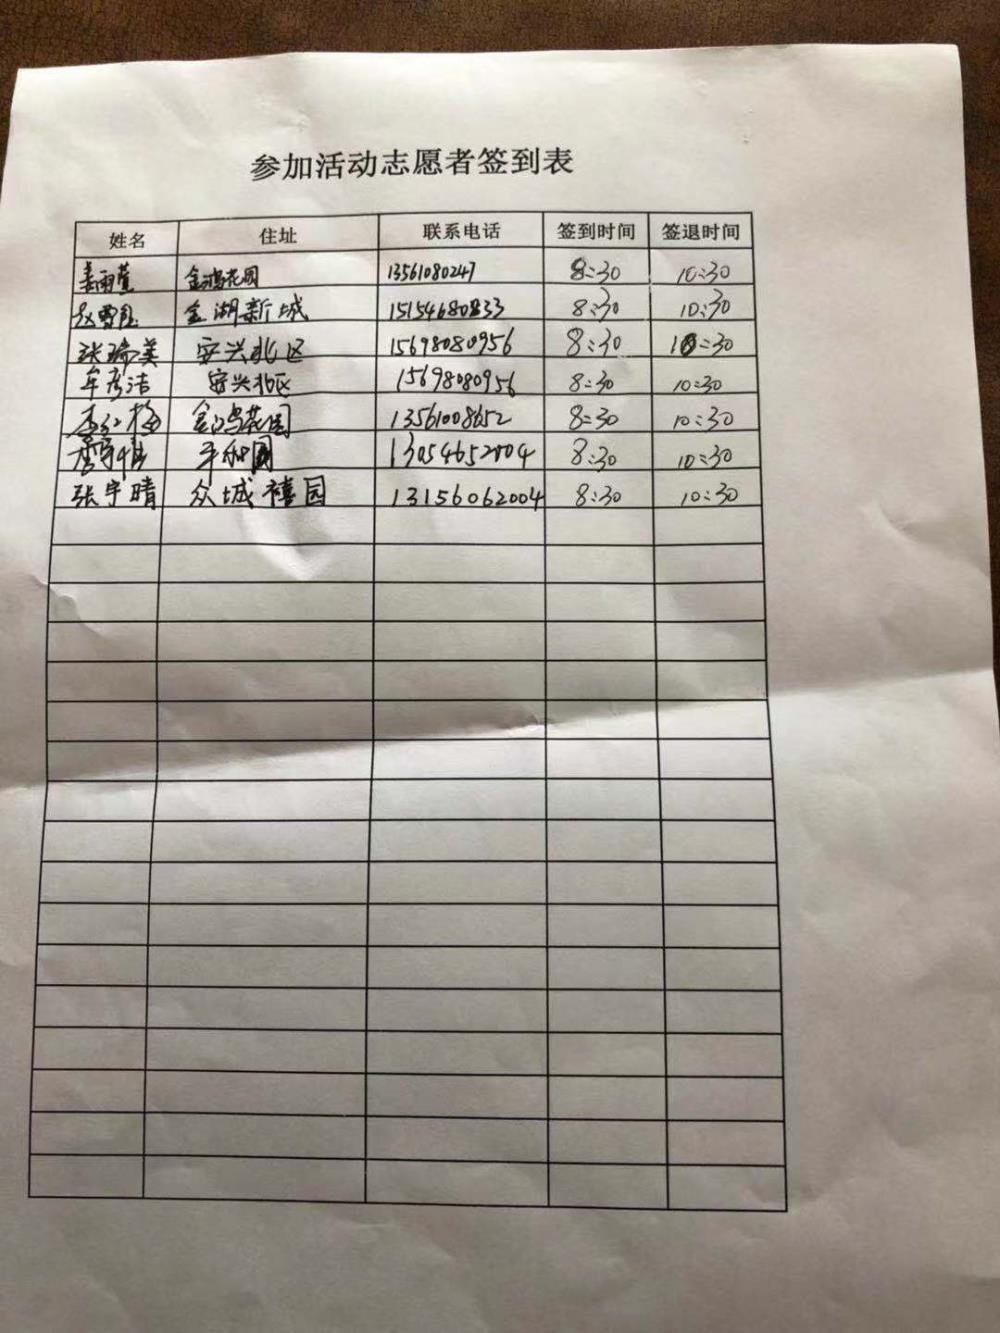 参加活动志愿者签到表
姓名 住址 联系电话 签到时间 签退时间
姜雨萱 金鸿花园 13561080247 8:30 10:30
赵雪 金湖新城 15154680833 8:30 10:30
张瑞美 安兴北区 15698080956 8:30 10:30
牟彦洁 安兴北区 15698080956 8:30 10:30
李红梅 金鸿花园 13561008652 8:30 10:30
平和园 13054652004 8:30 10:30
张宇晴 众城禧园 13156062004 8:30 10:30